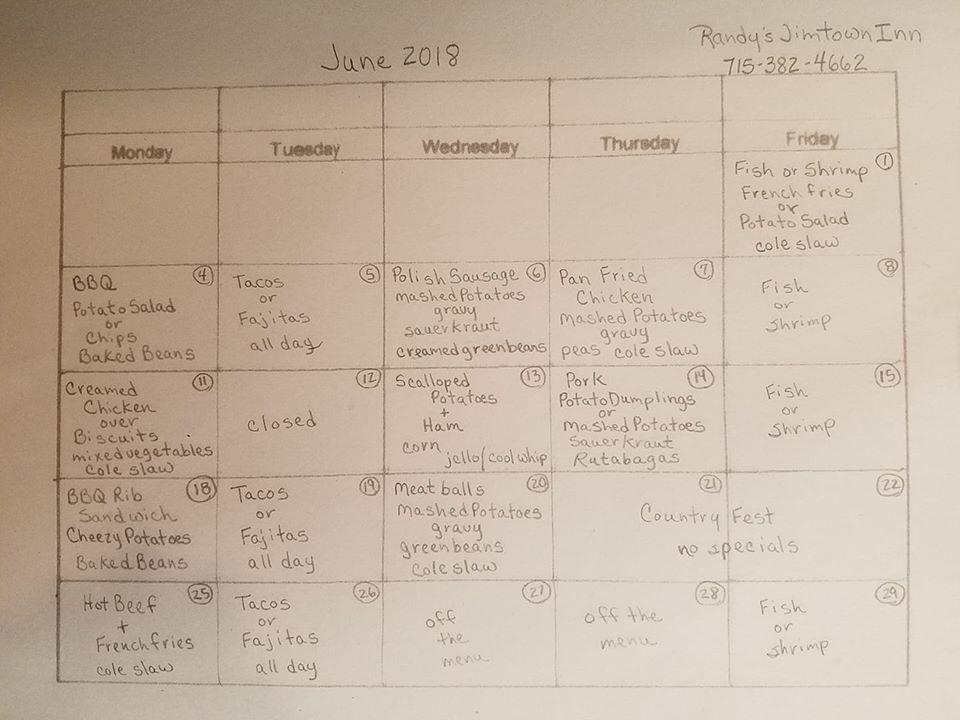 Randy's Jimtown Inn
June 2018
715-382-4662
Monday Tuesday Wednesday Thursday Friday
1
Fish or Shrimp
French fries
or
Potato Salad
cole slaw
4
BBQ
Potato Salad
or
Chips
Baked Beans
5
Tacos
or
Fajitas
all day
6
Polish Sausage
mashed Potatoes
gravy
sauerkraut
creamed greenbeans
7
Pan Fried
Chicken
Mashed Potatoes
gravy
peas cole slaw
8
Fish
or
shrimp
11
Creamed
Chicken
over
Biscuits
mixed vegetables
Cole slaw
12
closed
13
Scalloped
Potatoes
+
Ham
corn
jello/cool whip
14
Pork
Potato Dumplings
or
Mashed Potatoes
Sauerkraut
Rutabagas
15
Fish
or
Shrimp
18
BBQ Rib
Sandwich
Cheezy Potatoes
Baked Beans
19
Tacos
or
Fajitas
all day
20
Meat balls
Mashed Potatoes
gravy
greenbeans
Cole slaw
21
22
Country Fest
no specials
25
Hot Beef
+
French fries
cole slaw
26
Tacos
or
Fajitas
all day
27
off
the
menu
28
off the
menu
29
Fish
or
shrimp